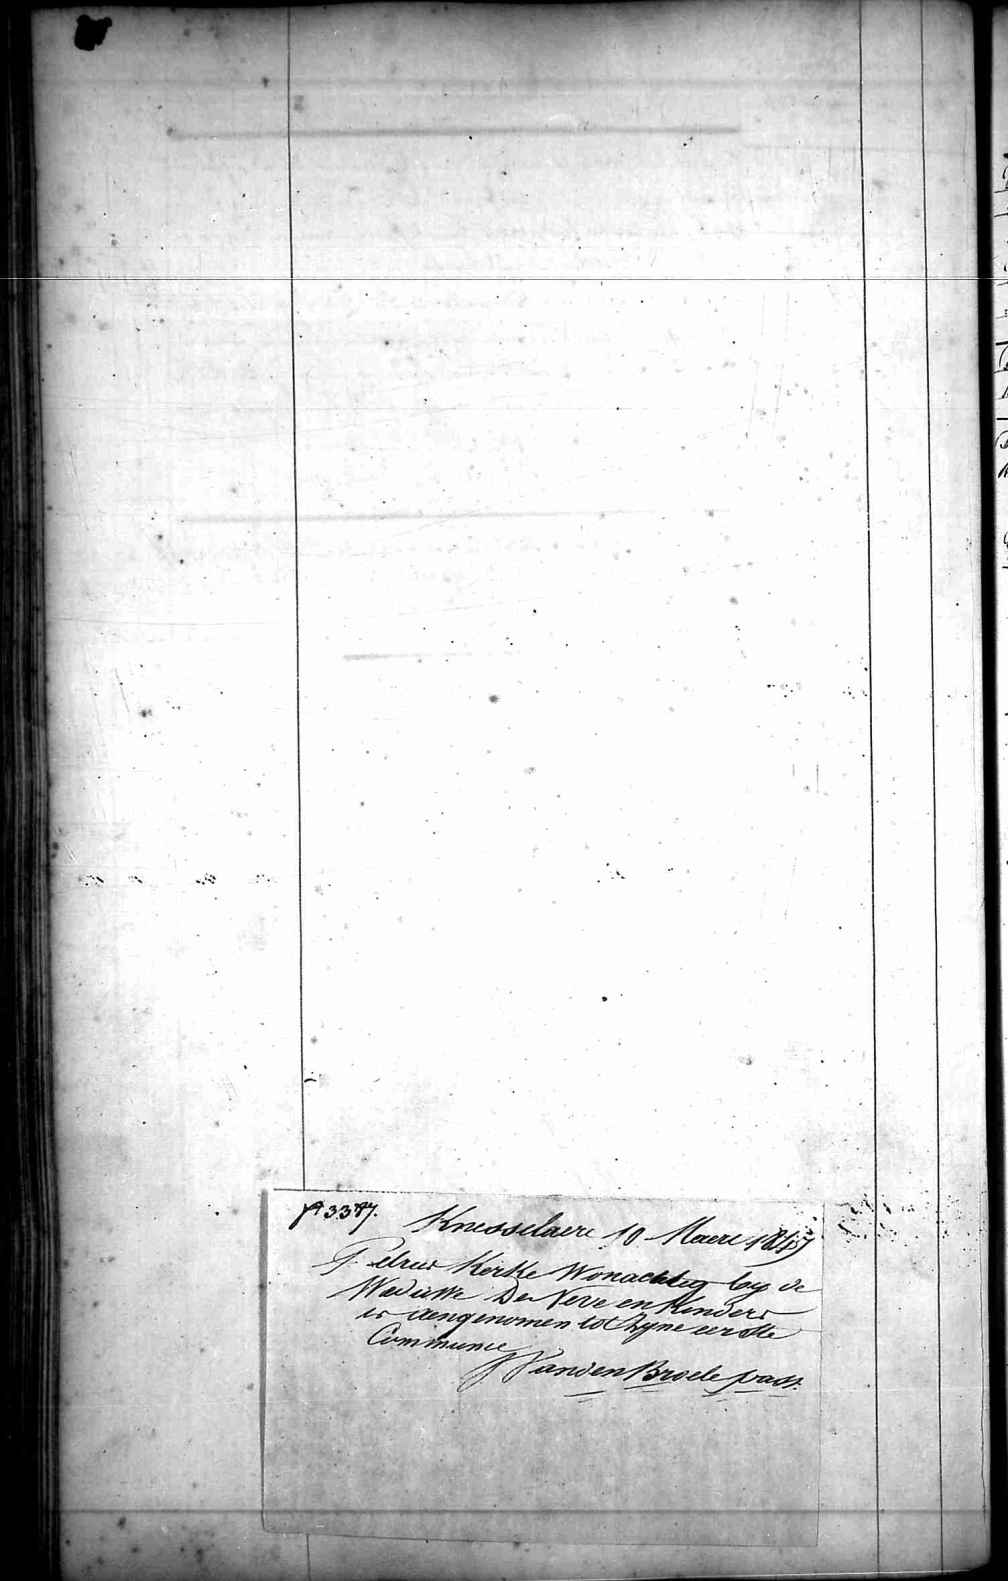 N° 3347.
Knesselaere 10 Maere 1845
Petrus Kerke Wonachtig by de
Weduwe De Neve en Kinders
is aengenomen tot Zyne eerste
Communie
VandenBroele past.